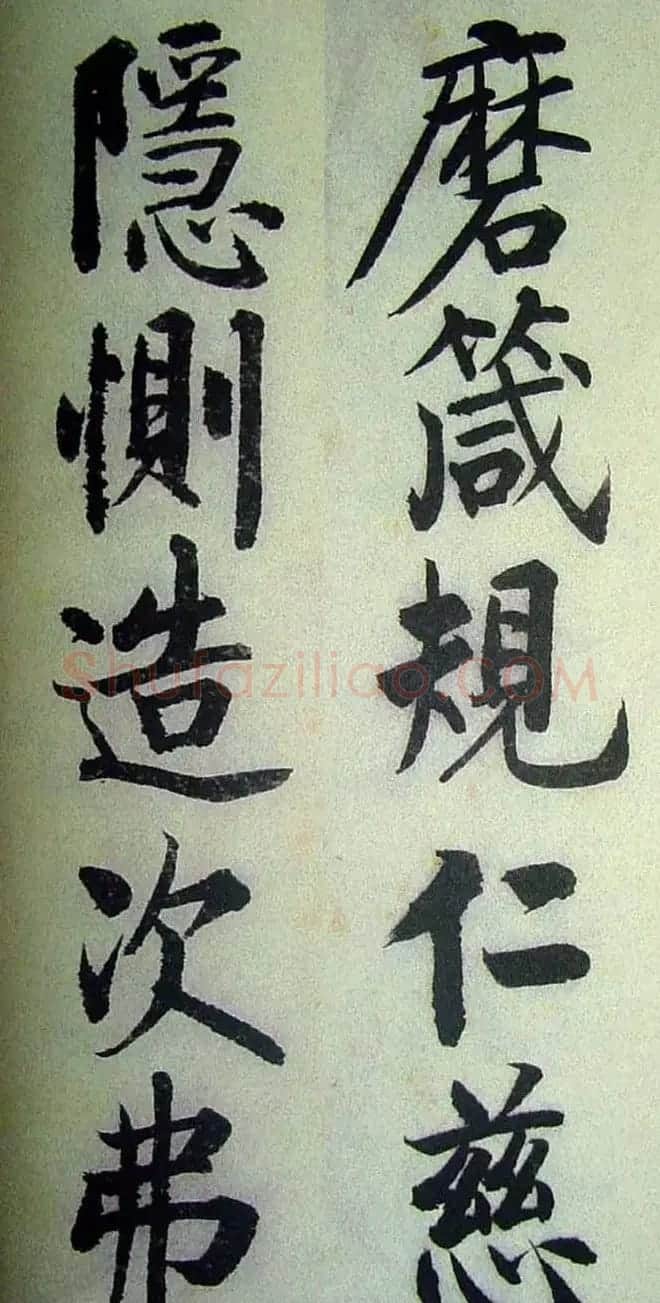 磨箴規仁慈
隱惻造次弗
Shufaziliao.COM